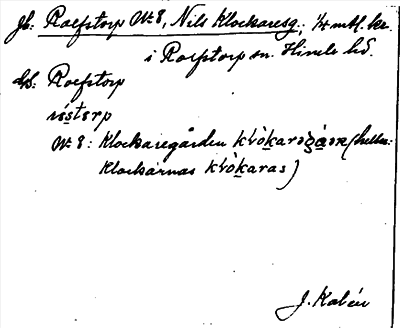 Jb: Roestorp № 8, Nils Klockaresg.; 1/4 mtl. kr.
i Roestorp sn. Himle hd.
Us: Roestorp
rɷ́storp
№ 8: Klockaregården klɷ́karəgɑ̀ɷn (heller:
Klockarnas klɷ́karas)
J. Kalén